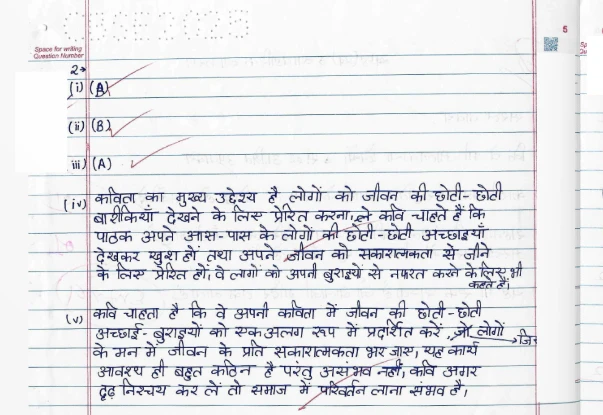 CBSE 2025
5
Space for writing
Question Number
2→
(i) (A)
(ii) (B)
iii) (A)
(iv) कविता का मुख्य उद्देश्य है लोगों को जीवन की छोटी-छोटी
बारीकियाँ देखने के लिए प्रेरित करना, कवि चाहते हैं कि
पाठक अपने आस-पास के लोगों की छोटी-छोटी अच्छाइयाँ
देखकर खुश हों तथा अपने जीवन को सकारात्मकता से जीने
के लिए प्रेरित हों, वे लोगों को अपनी बुराइयों से नफरत करने के लिए भी
कहते हैं।
(v) कवि चाहता है कि वे अपनी कविता में जीवन की छोटी-छोटी
अच्छाई-बुराइयों को एक अलग रूप में प्रदर्शित करें, जो लोगों
के मन में जीवन के प्रति सकारात्मकता भर जाए, यह कार्य
आवश्य ही बहुत कठिन है परंतु असंभव नहीं, कवि अगर
दृढ़ निश्चय कर लें तो समाज में परिवर्तन लाना संभव है,